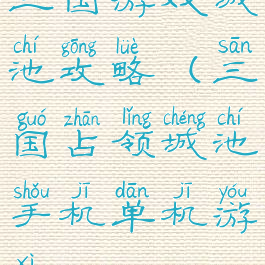 chí gōng lüè sān
池攻略（三
guó zhān lǐng chéng chí
国占领城池
shǒu jī dān jī yóu
手机单机游
xì